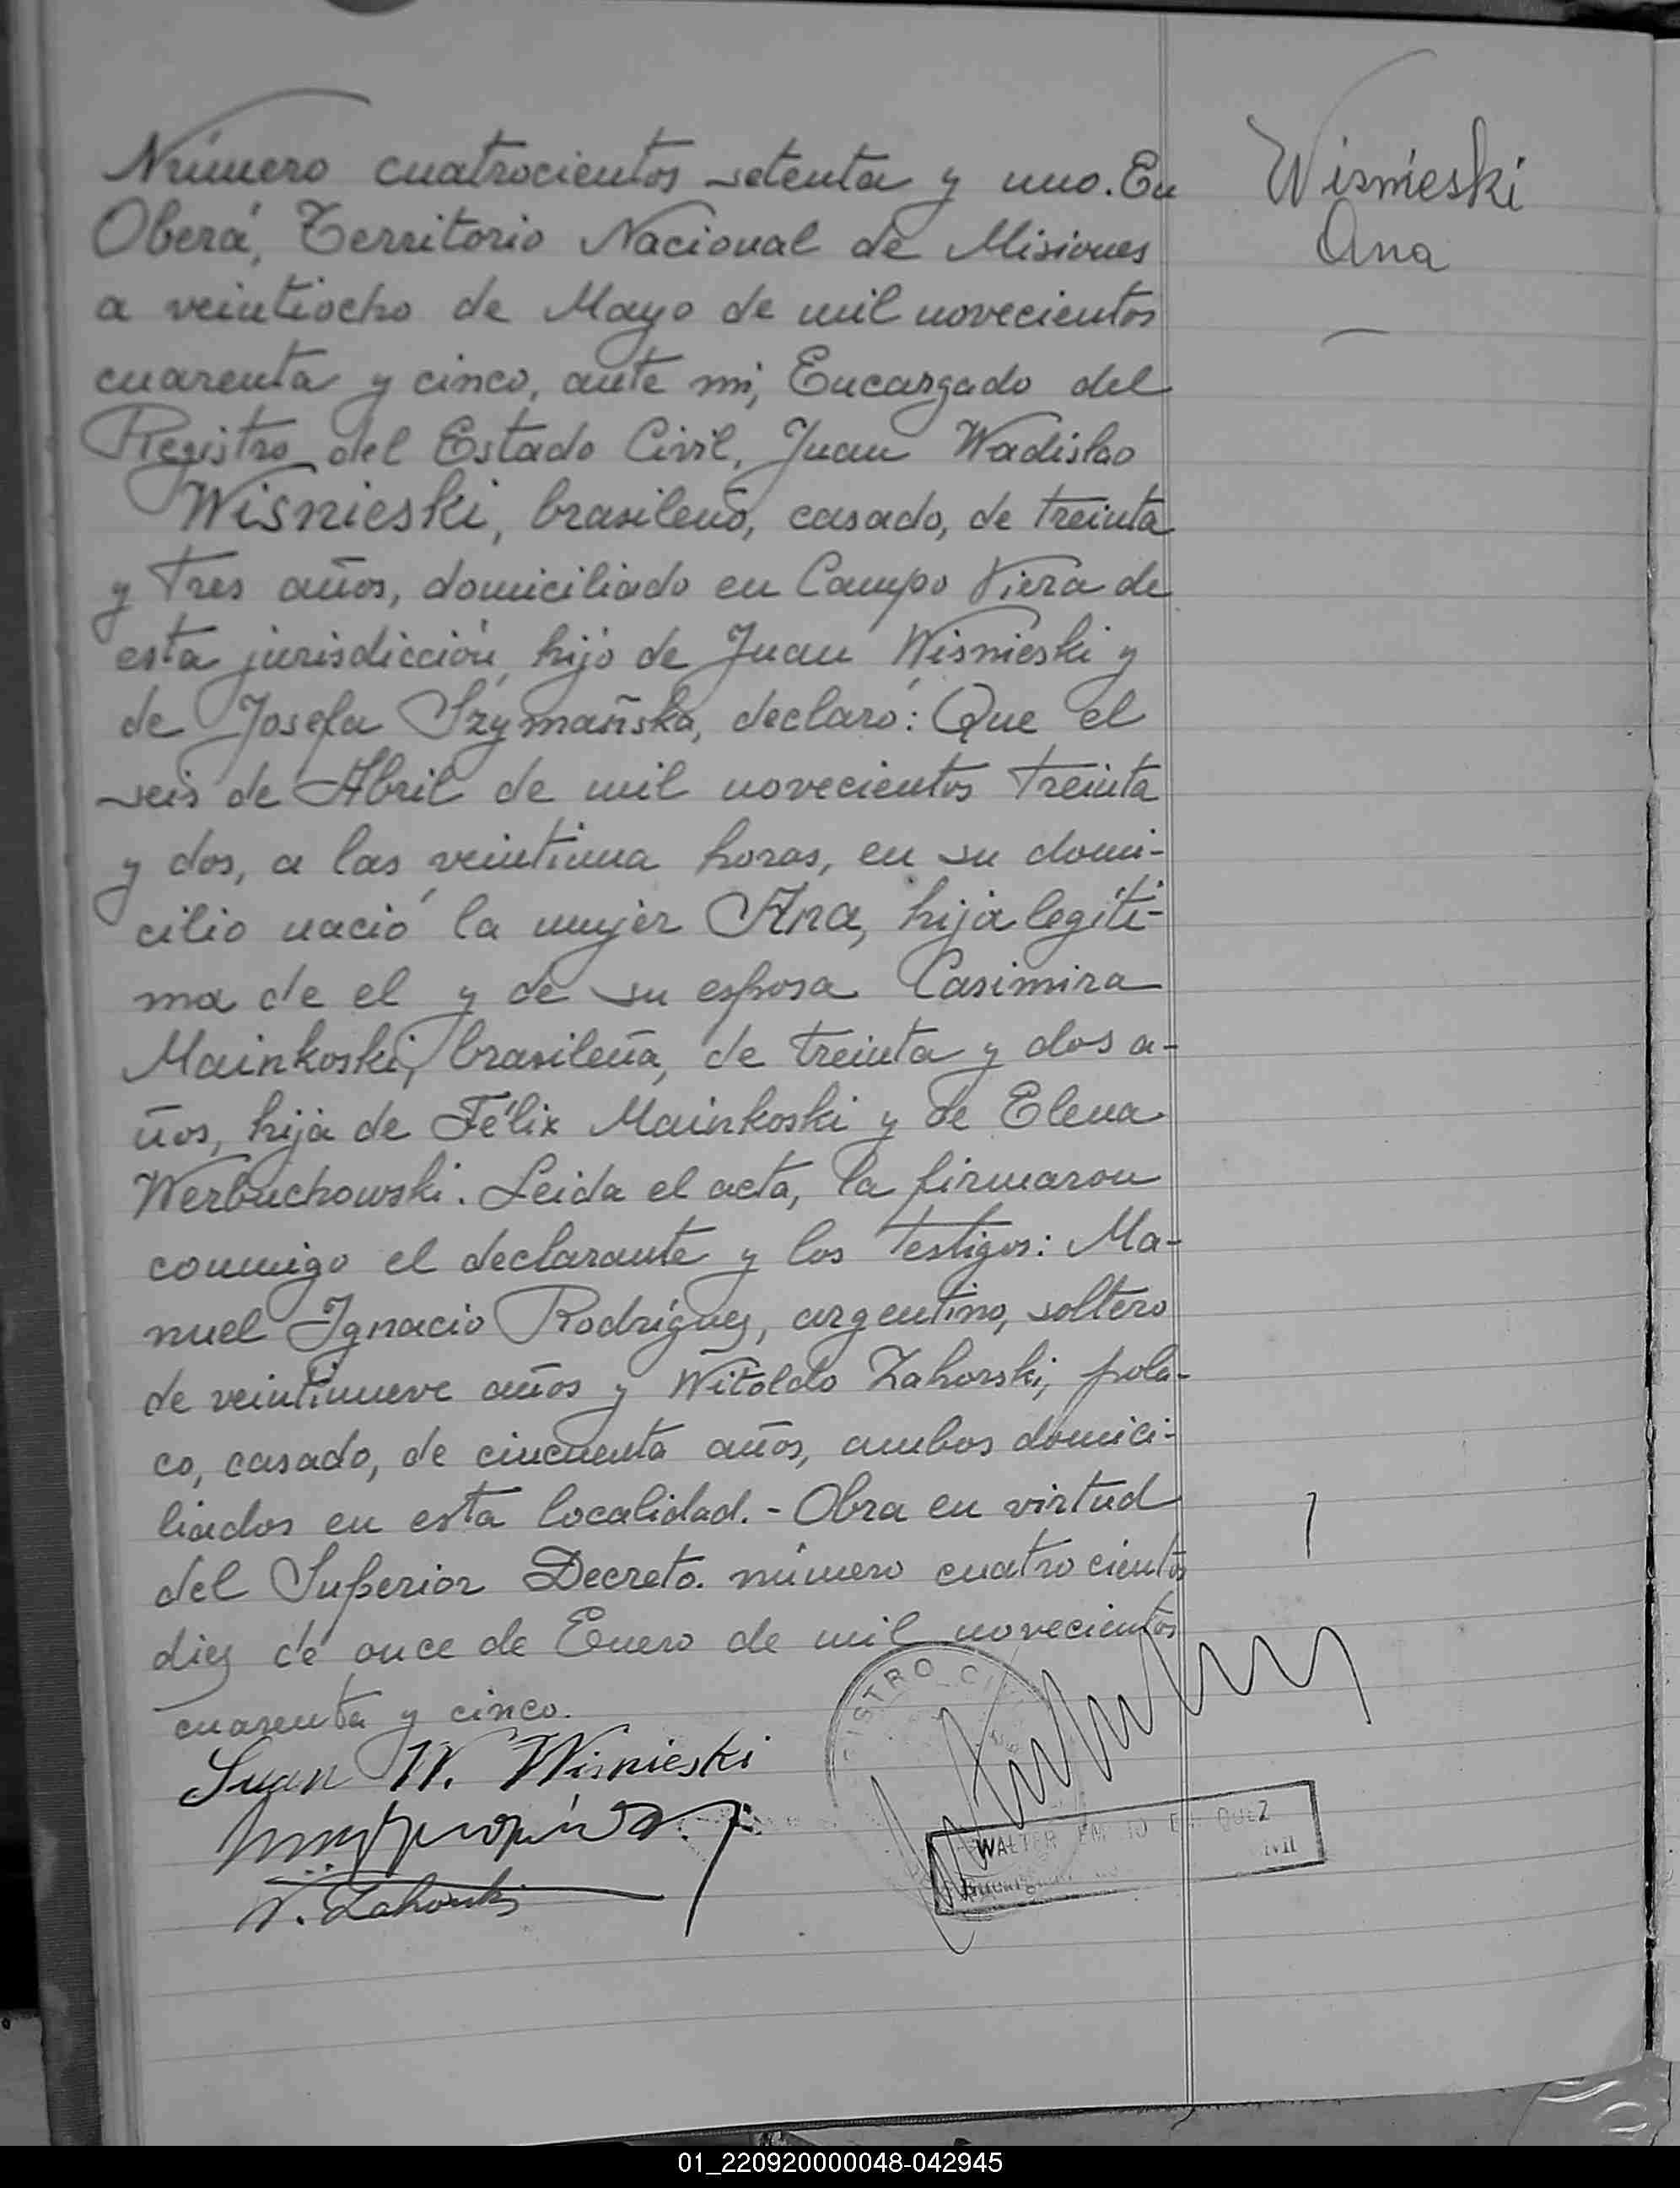 Número cuatrocientos setenta y uno. En
Oberá, Territorio Nacional de Misiones
a veintiocho de Mayo de mil novecientos
cuarenta y cinco, ante mi, Encargado del
Registro del Estado Civil, Juan Wadislao
Wisnieski, brasileño, casado, de treinta
y tres años, domiciliado en Campo Viera de
esta jurisdicción, hijo de Juan Wisnieski y
de Josefa Szymañska, declaró: Que el
seis de Abril de mil novecientos treinta
y dos, a las veintiuna horas, en su domi-
cilio nació la mujer Ana, hija legíti-
ma de el y de su esposa Casimira
Mainkoski, brasileña, de treinta y dos a-
ños, hija de Félix Mainkoski y de Elena
Werbuchowski. Leida el acta, la firmaron
conmigo el declarante y los testigos: Ma-
nuel Ignacio Rodríguez, argentino, soltero
de veintinueve años y Witoldo Zahorski, pola-
co, casado, de cincuenta años, ambos domici-
liados en esta localidad.- Obra en virtud
del Superior Decreto. número cuatrocientos
diez de once de Enero de mil novecientos
cuarenta y cinco.
Juan W. Wisnieski
W. Zahorski
Wisnieski
Ana
ISTRO CI
WALTER
01_220920000048-042945